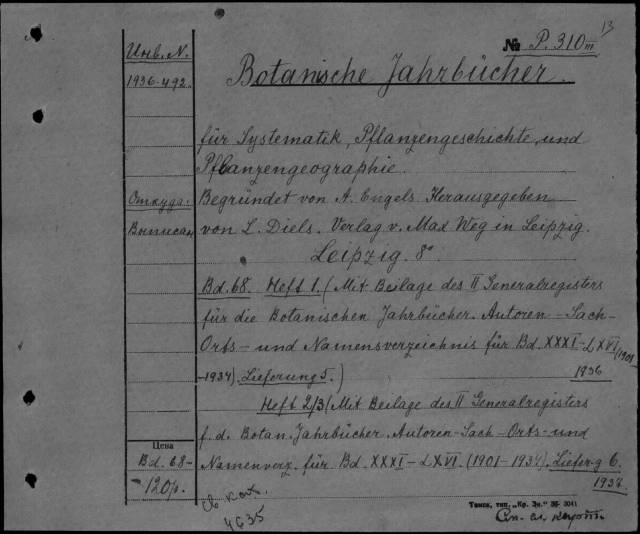 13
№ P. 310 III
Инв. N.
1936-492.
Botanische Jahrbücher.
für Systematik, Pflanzengeschichte, und
Pflanzengeographie.
Откуда:
Выписан
Begründet von A. Engels Herausgegeben
von L. Diels. Verlag v. Max Weg in Leipzig.
Leipzig. 8°
Bd. 68. Heft 1. (Mit Beilage des II Generalregisters
für die Botanischen Jahrbücher. Autoren-Sach-
Orts- und Namensverzeichnis für Bd. XXXI-LXVI. (1901
-1934). Lieferung 5.)
1936
Heft 2/3 (Mit Beilage des II Generalregisters
f. d. Botan. Jahrbücher. Autoren-Sach-Orts-und
Namenverz. für Bd. XXXI-LXVI. (1901-1934). Liefer-g 6.
1937.
Цена
Bd. 68-
120р.
4635
Томск, тип. „Кр. Зн." 36- 3041
См. сл. карт.